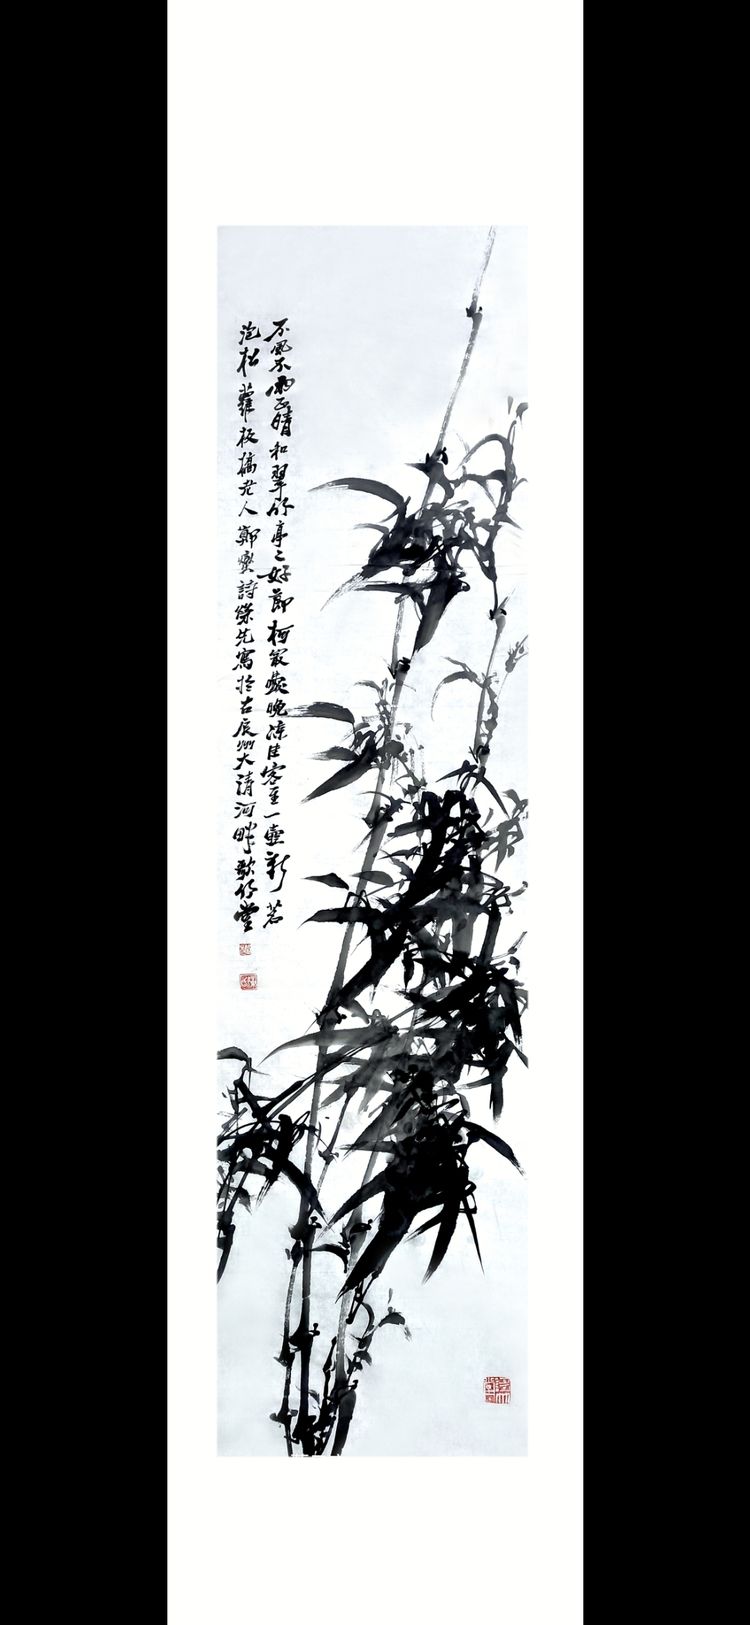 不風不雨正晴和翠竹亭亭好節柯最愛晚涼佳客至一壺新茗
泡松蘿板橋老人鄭燮詩祭先寫於古辰州大清河畔歌竹堂